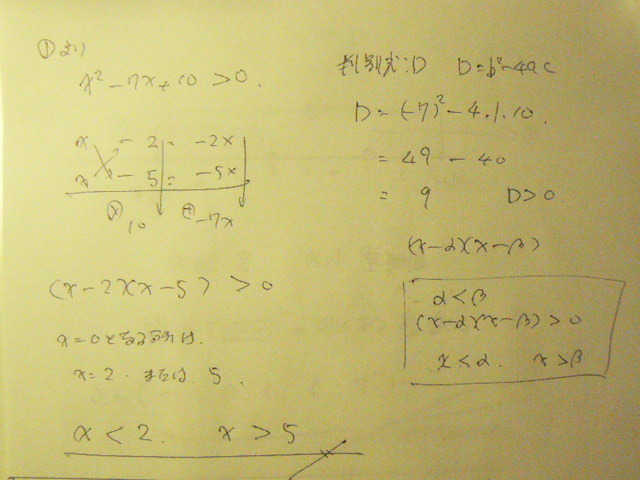 ①より
x² - 7x + 10 > 0.
x - 2 = -2x
x - 5 = -5x
⊗ 10 ⊕ -7x
(x-2)(x-5) > 0
x=0となる
x=2. または 5.
x < 2. x > 5
判別式:D D=b²-4ac
D = (-7)² - 4.1.10.
= 49 - 40
= 9 D>0
(x-α)(x-β)
α<β
(x-α)(x-β)>0
x<α. x>β